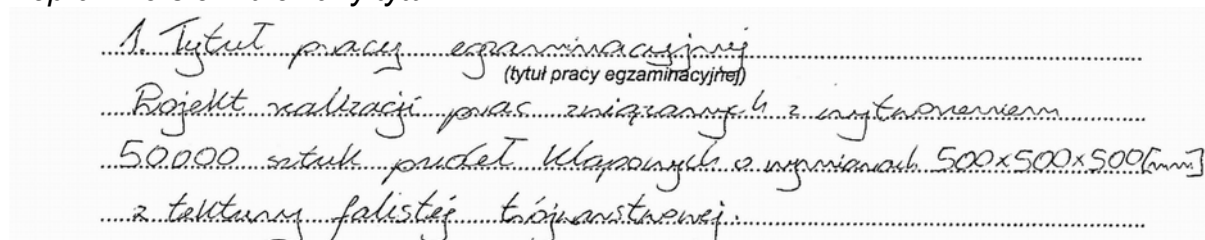 1. Tytuł pracy egzaminacyjnej
(tytuł pracy egzaminacyjnej)
Projekt realizacji prac związanych z wytworzeniem
50000 sztuk pudeł klapowych o wymiarach 500x500x500[mm]
z tektury falistej trójwarstwowej.